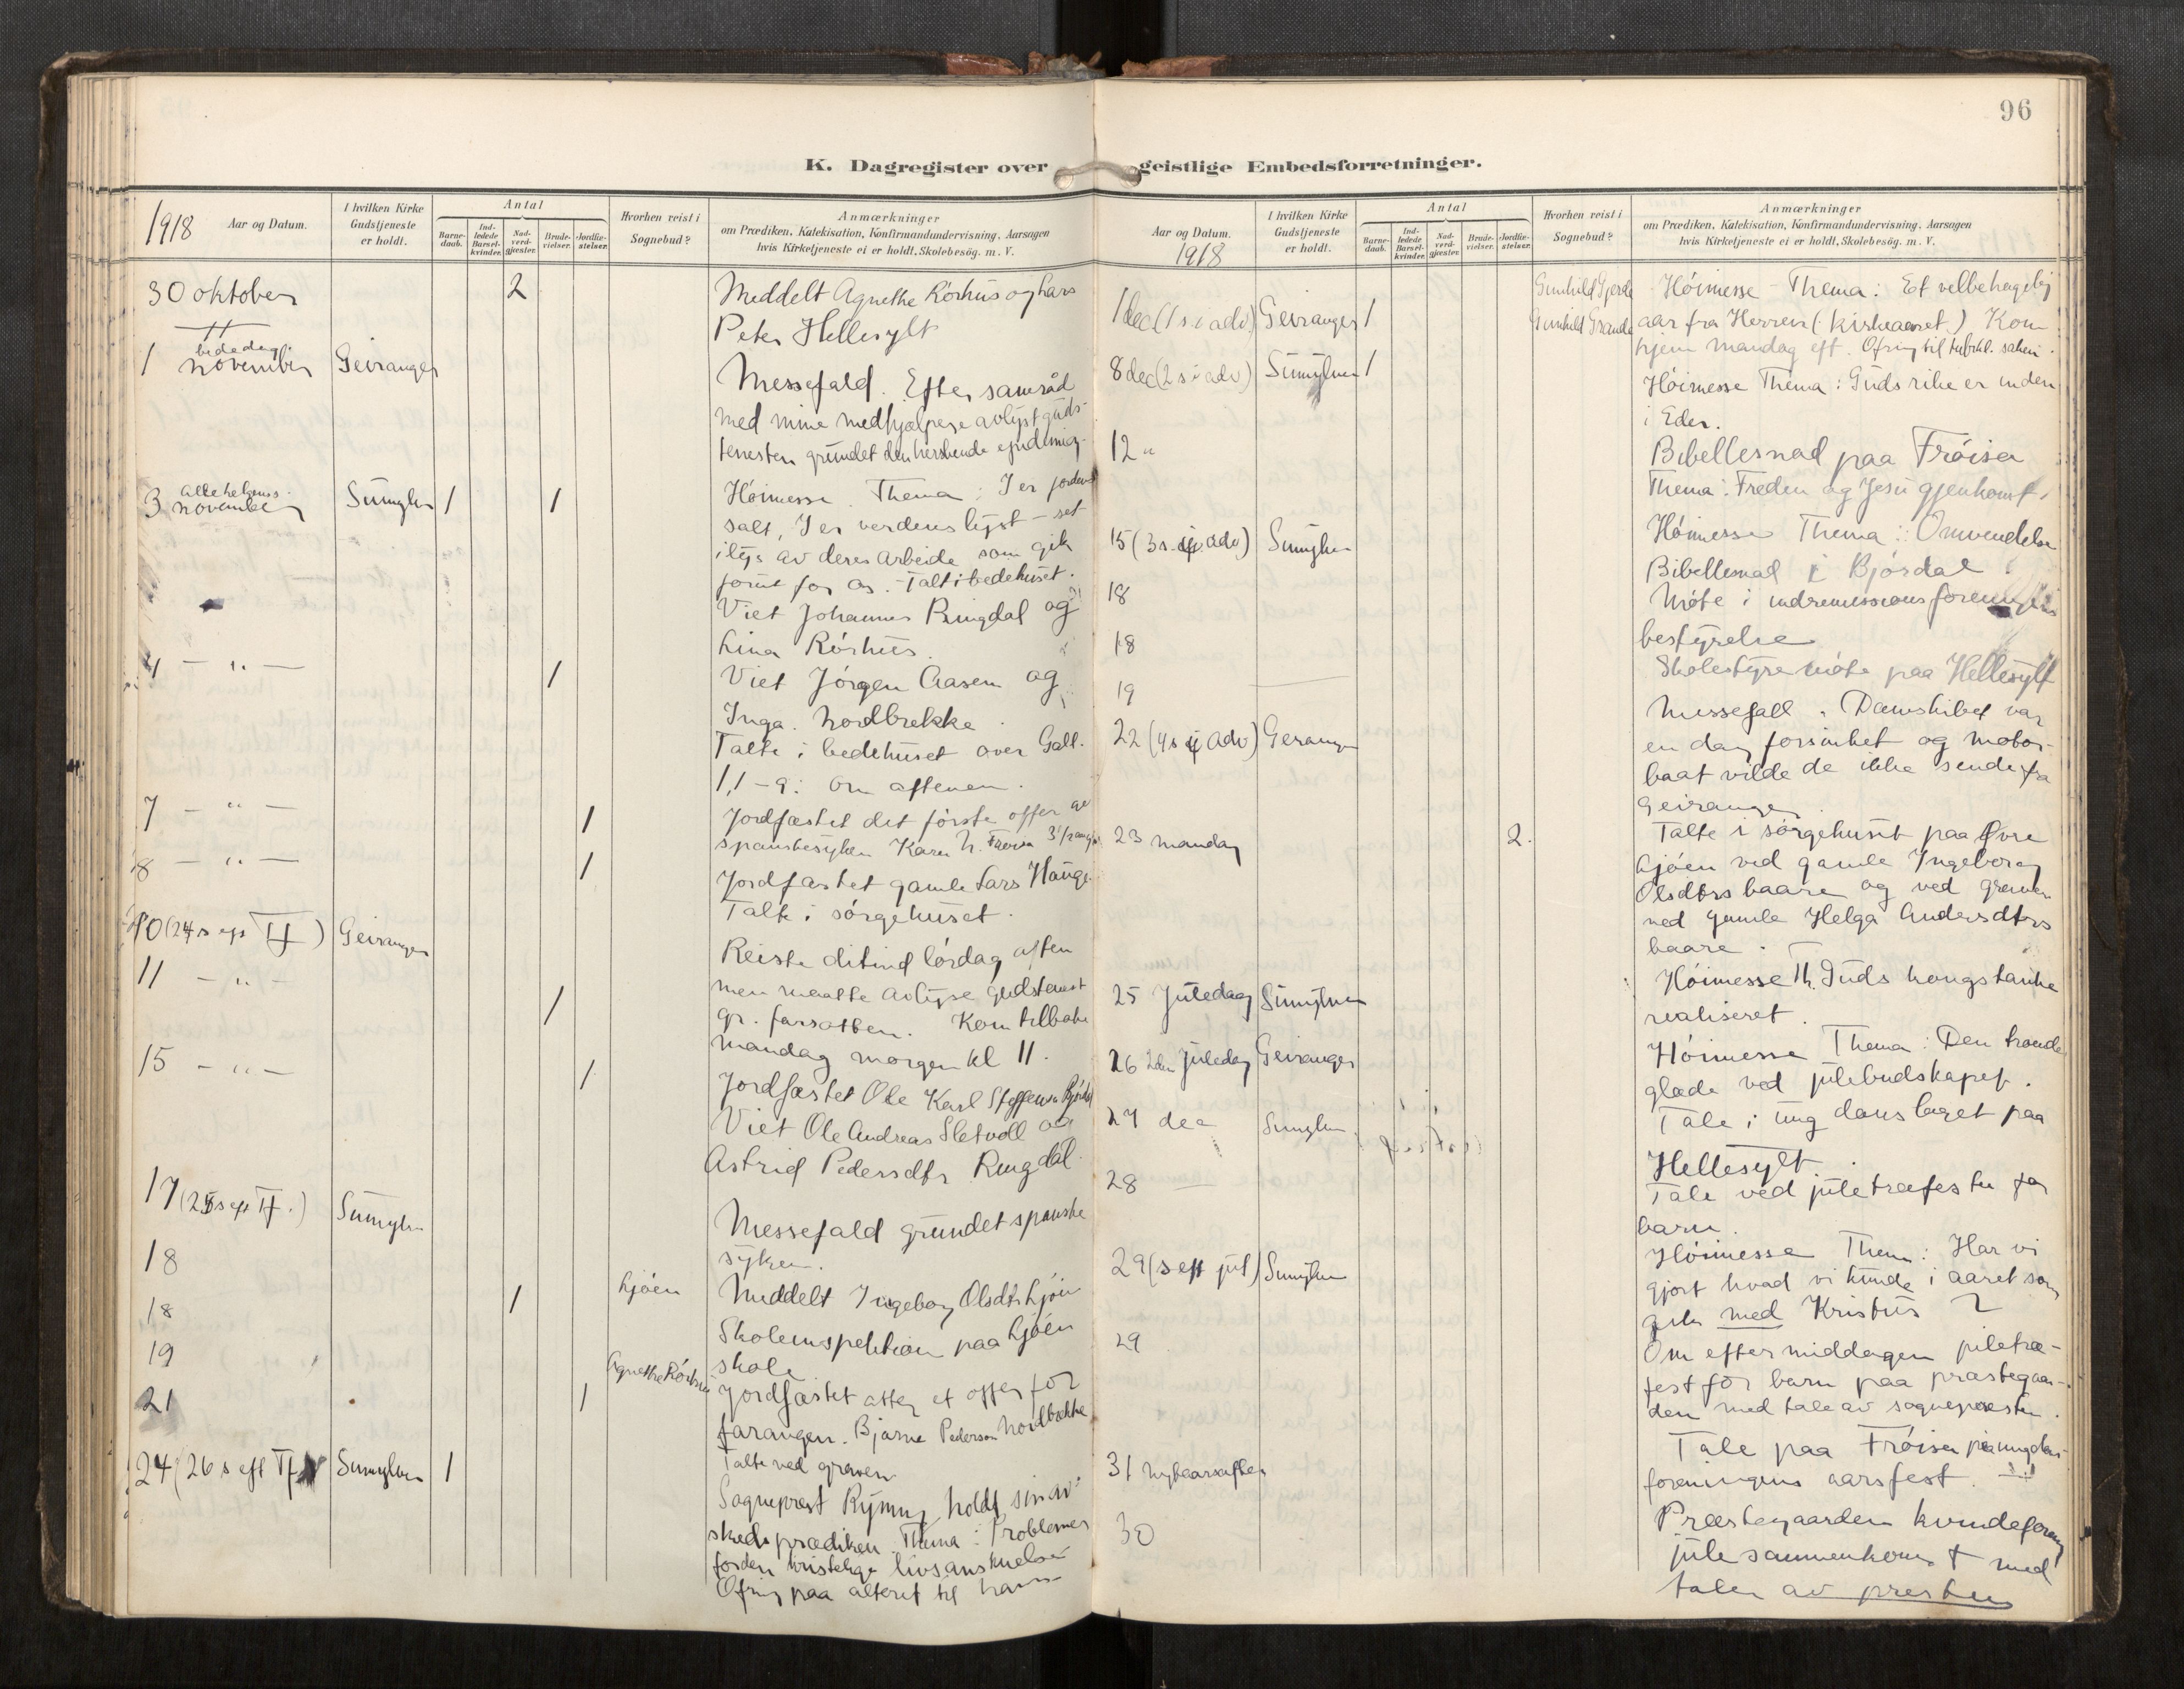 96
K. Dagregister over geistlige Embedsforretninger.
1918 Aar og Datum.
I hvilken Kirke Gudstjeneste er holdt.
Antal
Barnedaab.
Indledede Barselkvinder.
Nadverdgjester.
Brudevielser.
Jordfæstelser.
Hvorhen reist i Sognebud?
Anmærkninger
om Prædiken, Katekisation, Konfirmandundervisning, Aarsagen
hvis Kirketjeneste ei er holdt, Skolebesög. m. V.
30 oktober 2 Meddelt Agnethe Rörhus og Lars
Peter Hellesylt
1 bededag november Geiranger
Messefald. Efter samråd
med mine medhjælpere avlyst guds-
tenesten grundet den herskende epidemien
3 allehelgens november Sunnylven 1 1 Höimesse Thema: I er jordens
salt, I er verdens lys – set
i lys av deres arbeide som gik
forut for os. Talt i bedehuset.
Viet Johannes Ringdal og
Lina Rörhus.
4 — " — 1 Viet Jörgen Aasen og
Inga Nordbrekke
Talte i bedehuset over Gall.
1,1-9: om aftenen.
7 — " — 1 Jordfæstet det förste offer av
spanskesyken Karen N. Fröisa
8 — " — 1 Jordfæstet gamle Lars Hauge
Talte i sörgehuset.
10 (24 s ep Tf) Geiranger
Reiste ditind lördag aften
11 — " —
men maatte avlyse gudstenest
1 gr. farsotten. Kom tilbake
mandag morgen kl 11.
15 — " — 1 Jordfæstet Ole Karl Steffensen Björdal
Viet Ole Andreas Sletvoll og
Astrid Pedersdtr Ringdal.
17 (25 s ep Tf.) Sunnylven
Messefald grundet spanske
syken.
18
18 1 Ljöen Meddelt Ingeborg Olsdtr Ljöen
19 Skoleinspektion paa Ljöen
skole
Agnethe Rörhus
21 1 Jordfæstet atter et offer for
farangen. Bjarne Pederson Nordbrekke
Talte ved graven
24 (26 s eft Tf) Sunnylven 1
Sogneprest Rynning holdt sin av-
skedsprædiken. Thema: Problemer
for den kristelige livsanskuelse
Ofring paa alteret til ham
Aar og Datum. 1918
I hvilken Kirke Gudstjeneste er holdt.
Antal
Barnedaab.
Indledede Barselkvinder.
Nadverdgjester.
Brudevielser.
Jordfæstelser.
Hvorhen reist i Sognebud?
Anmærkninger
om Prædiken, Katekisation, Konfirmandundervisning, Aarsagen
hvis Kirketjeneste ei er holdt, Skolebesög. m. V.
1 dec (1 s i adv) Geiranger 1 Gunhild Gjerde Höimesse Thema: Et velbehagelig
Gunhild Grande aar fra Herren (kirkeaaret.) Kom
hjem mandag eft. Ofring til tubrkl. saken.
8 dec (2 s i adv) Sunnylven 1
Höimesse Thema: Guds rike er inden
i Eder.
12 " Bibellesnad paa Fröisa
Thema: Freden og Jesu gjenkomst.
15 (3 s. i adv) Sunnylven
Höimesse Thema: Omvendelse
18 Bibellesnad i Björdal.
18 Möte i indremissionsforeningens
bestyrelse
19 Skolestyremöte paa Hellesylt
22 (4 s i adv) Geiranger
Messefall. Damskibet var
en dag forsinket og motor-
baat vilde de ikke sende fra
Geiranger.
23 mandag 2. Talte i sörgehuset paa Övre
Ljöen ved gamle Ingeborg
Olsdtrs baare og ved graven
ved gamle Helga Andersdtrs
baare.
25 Juledag Sunnylven Höimesse Th. Guds kongstanke
realiseret.
26 2den Juledag Geiranger Höimesse Thema: Den troendes
glæde ved julebudskapet.
27 dec Sunnylven Tale i ungdomslaget paa
Hellesylt.
28 Tale ved juletræfesten for
barn.
29 (s eft jul) Sunnylven Höimesse Thema: Har vi
gjort hvad vi kunde i aaret som
gik med Kristus?
29 Om eftermiddagen juletræ-
fest för barn paa præstegaar-
den med tale av sognepresten.
31 Nytaarsaften Tale paa Fröisa
foreningens aarsfest.
30 Præstegaarden kvindeforening
julesammenkomst med
talen av presten